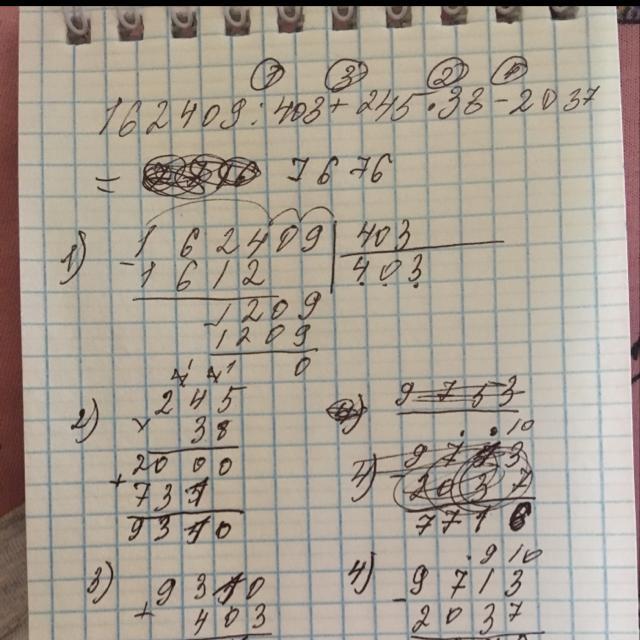 1 3 2 4
162409:403+245·38-2037
= 7676
1) 162409 403
- 1612 403
- 1209
1209
0
2) 245
× 38
2000
+ 735
9310
9753
10
9713
2037
7716
3) 9310
+ 403
4) 9 10
- 9713
2037